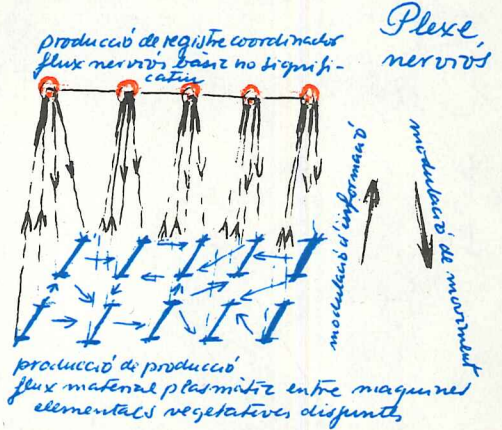 Plexe
nerviós
producció de registre coordinador
flux nerviós bàsic no signifi-
catiu
modulació d'informació
modulació de moviment
producció de producció
flux material plasmàtic entre maquines
elementals vegetatives disjuntes